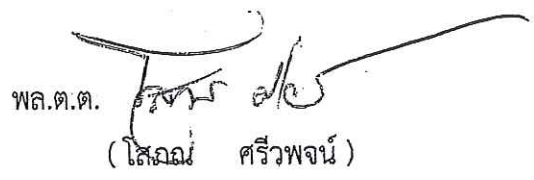 พล.ต.ต.
( โสภณ ศรีวพจน์ )